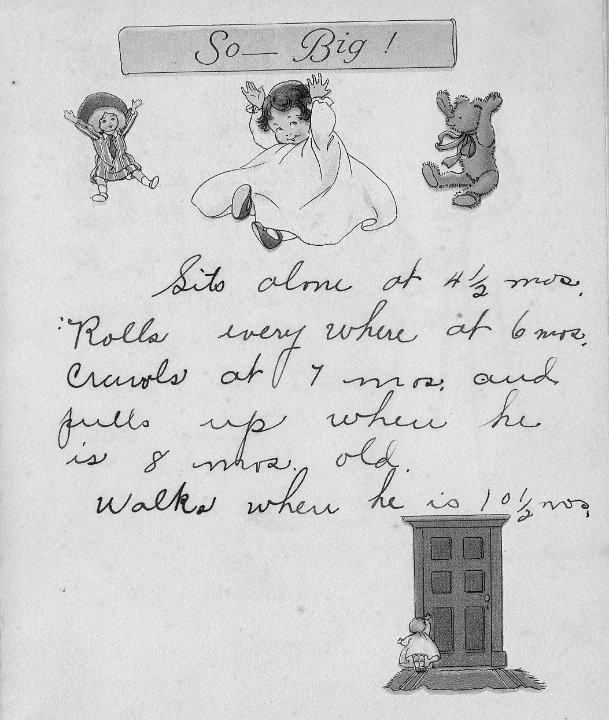 So— Big!
Sits alone at 4½ mos.
Rolls every where at 6 mos.
Crawls at 7 mos. and
pulls up when he
is 8 mos. old.
Walks when he is 10½ mos.